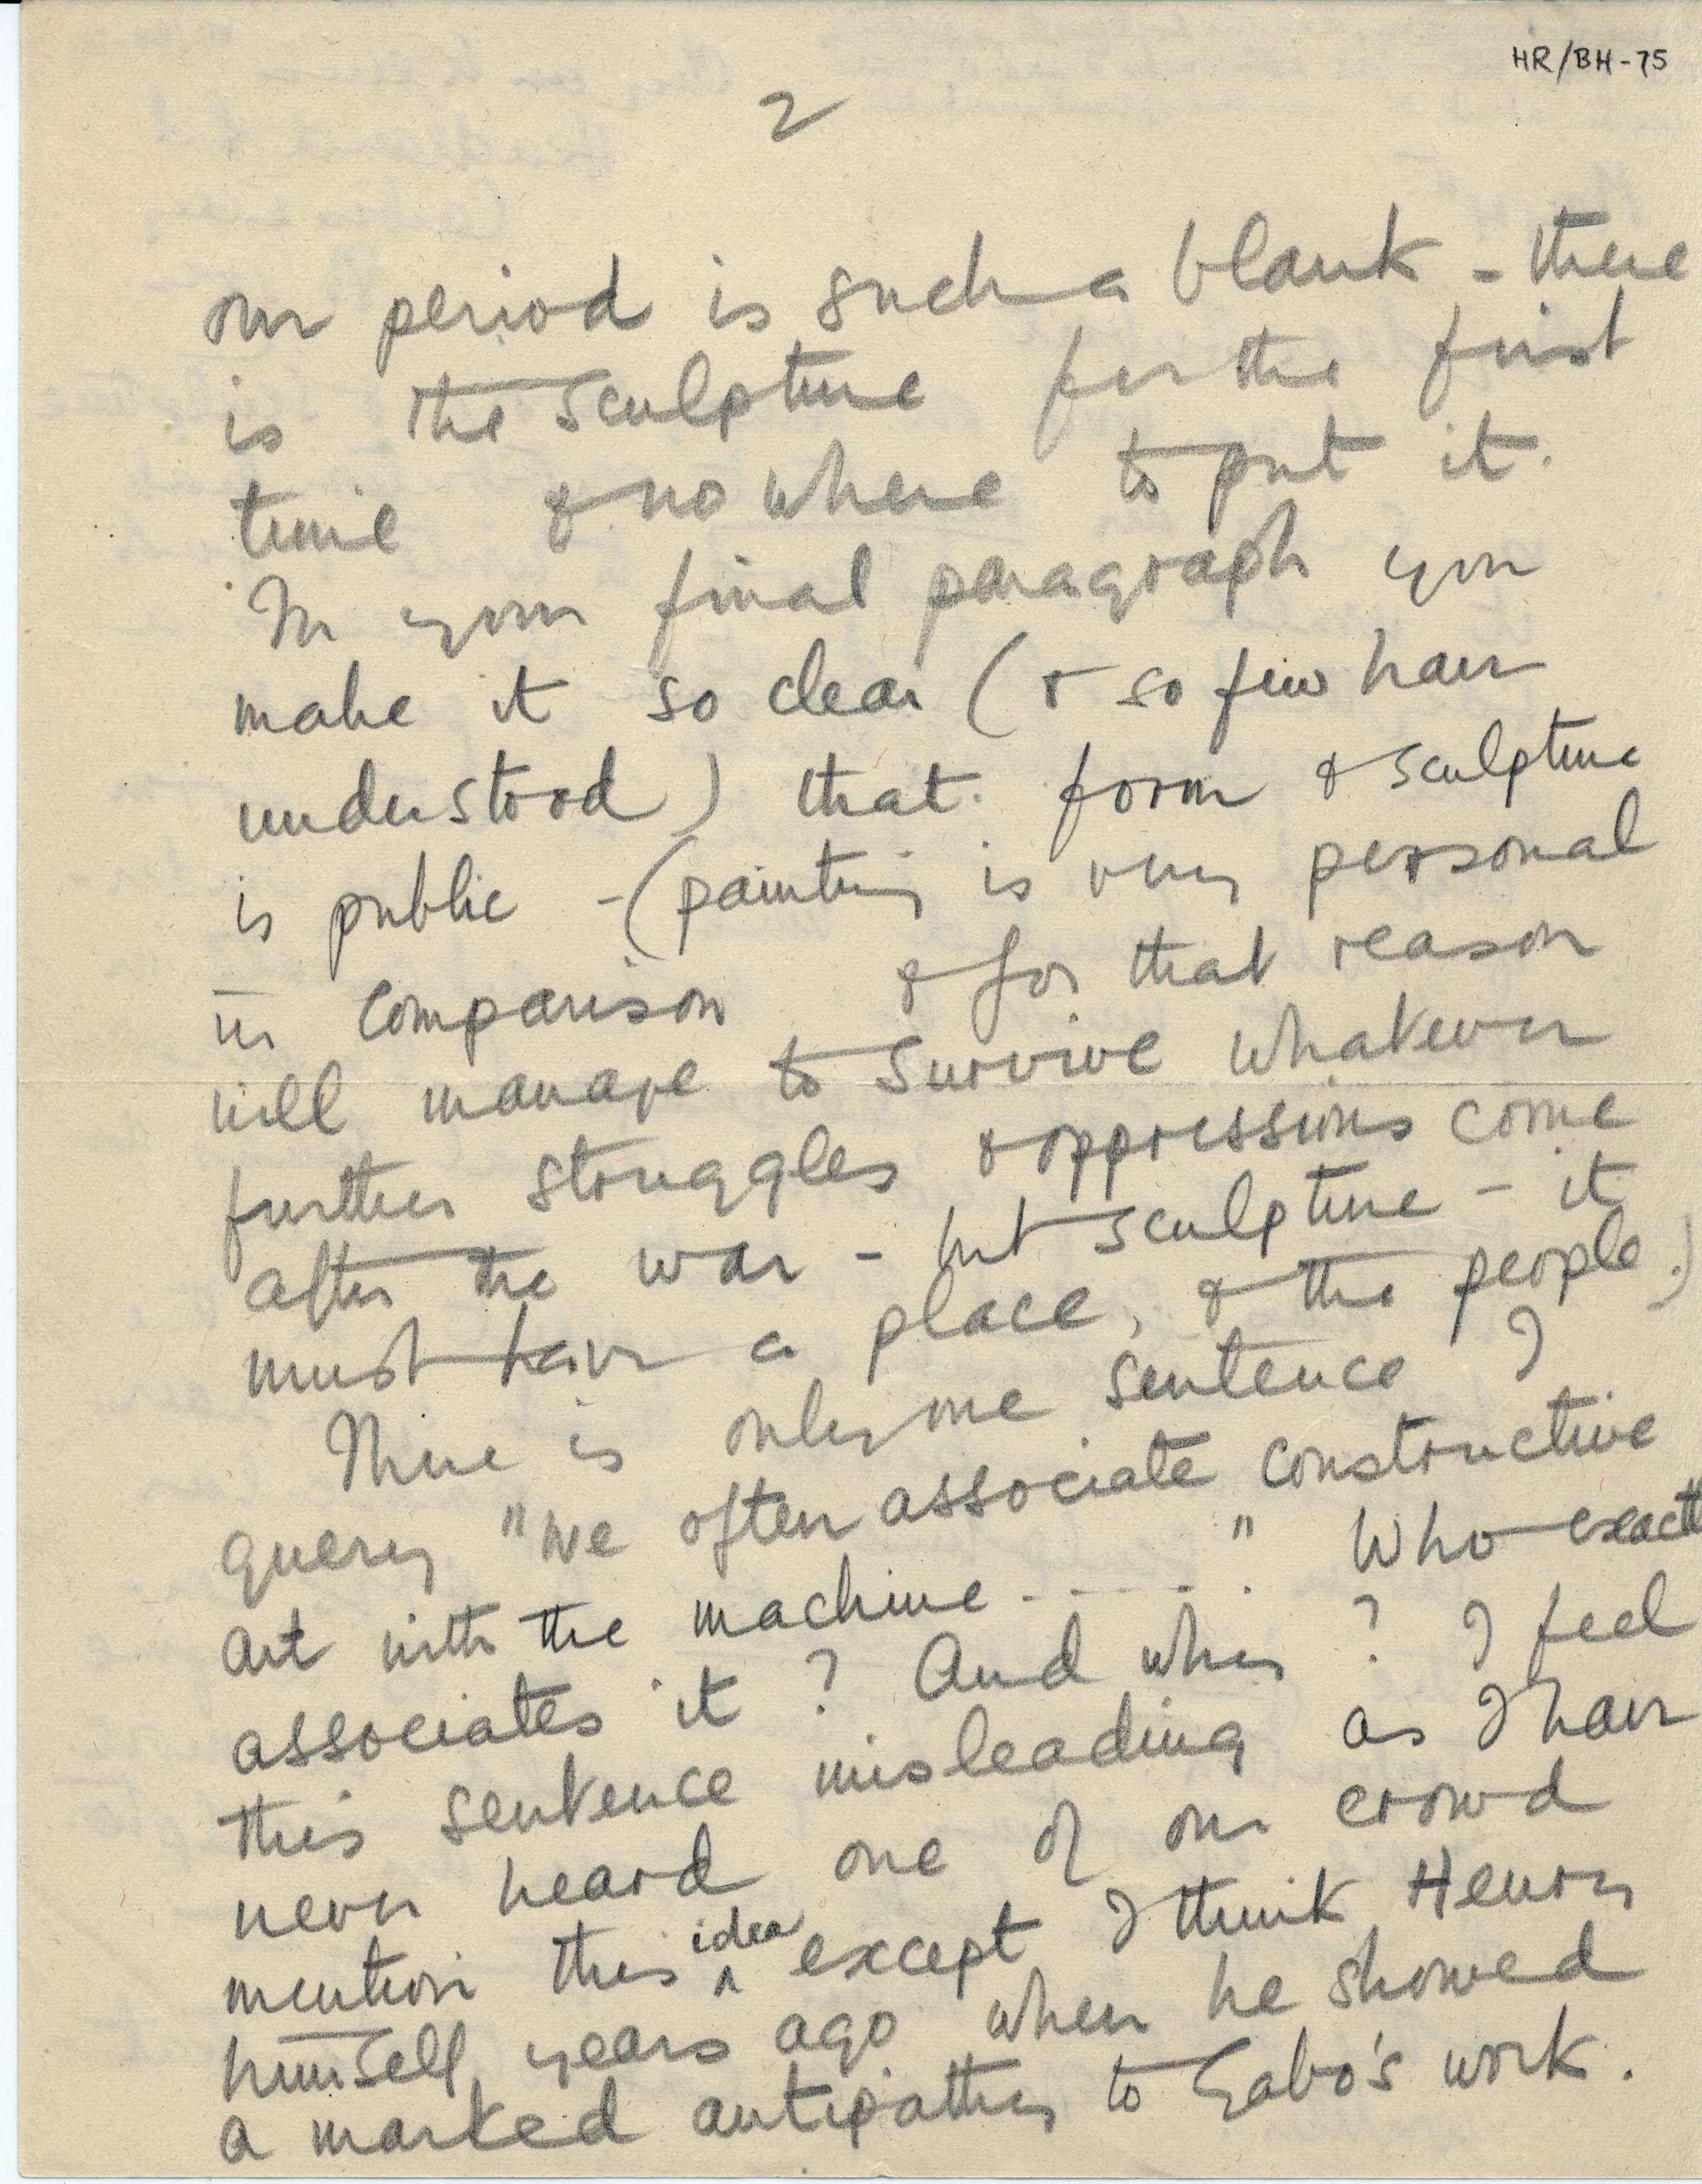 HR/BH-75
2
our period is such a blank - there
is the sculpture for the first
time & no where to put it.
In your final paragraph you
make it so clear (& so few have
understood) that form & sculpture
is public - (painting is very personal
in comparison & for that reason
will manage to survive whatever
further struggles & oppressions come
after the war - but sculpture - it
must have a place, & the people.)
There is only one sentence I
query "we often associate constructive
art with the machine - - - - . " Who exactly
associates it? And why? I feel
this sentence misleading as I have
never heard one of our crowd
mention this idea except I think Henry
himself years ago when he showed
a marked antipathy to Gabo's work.